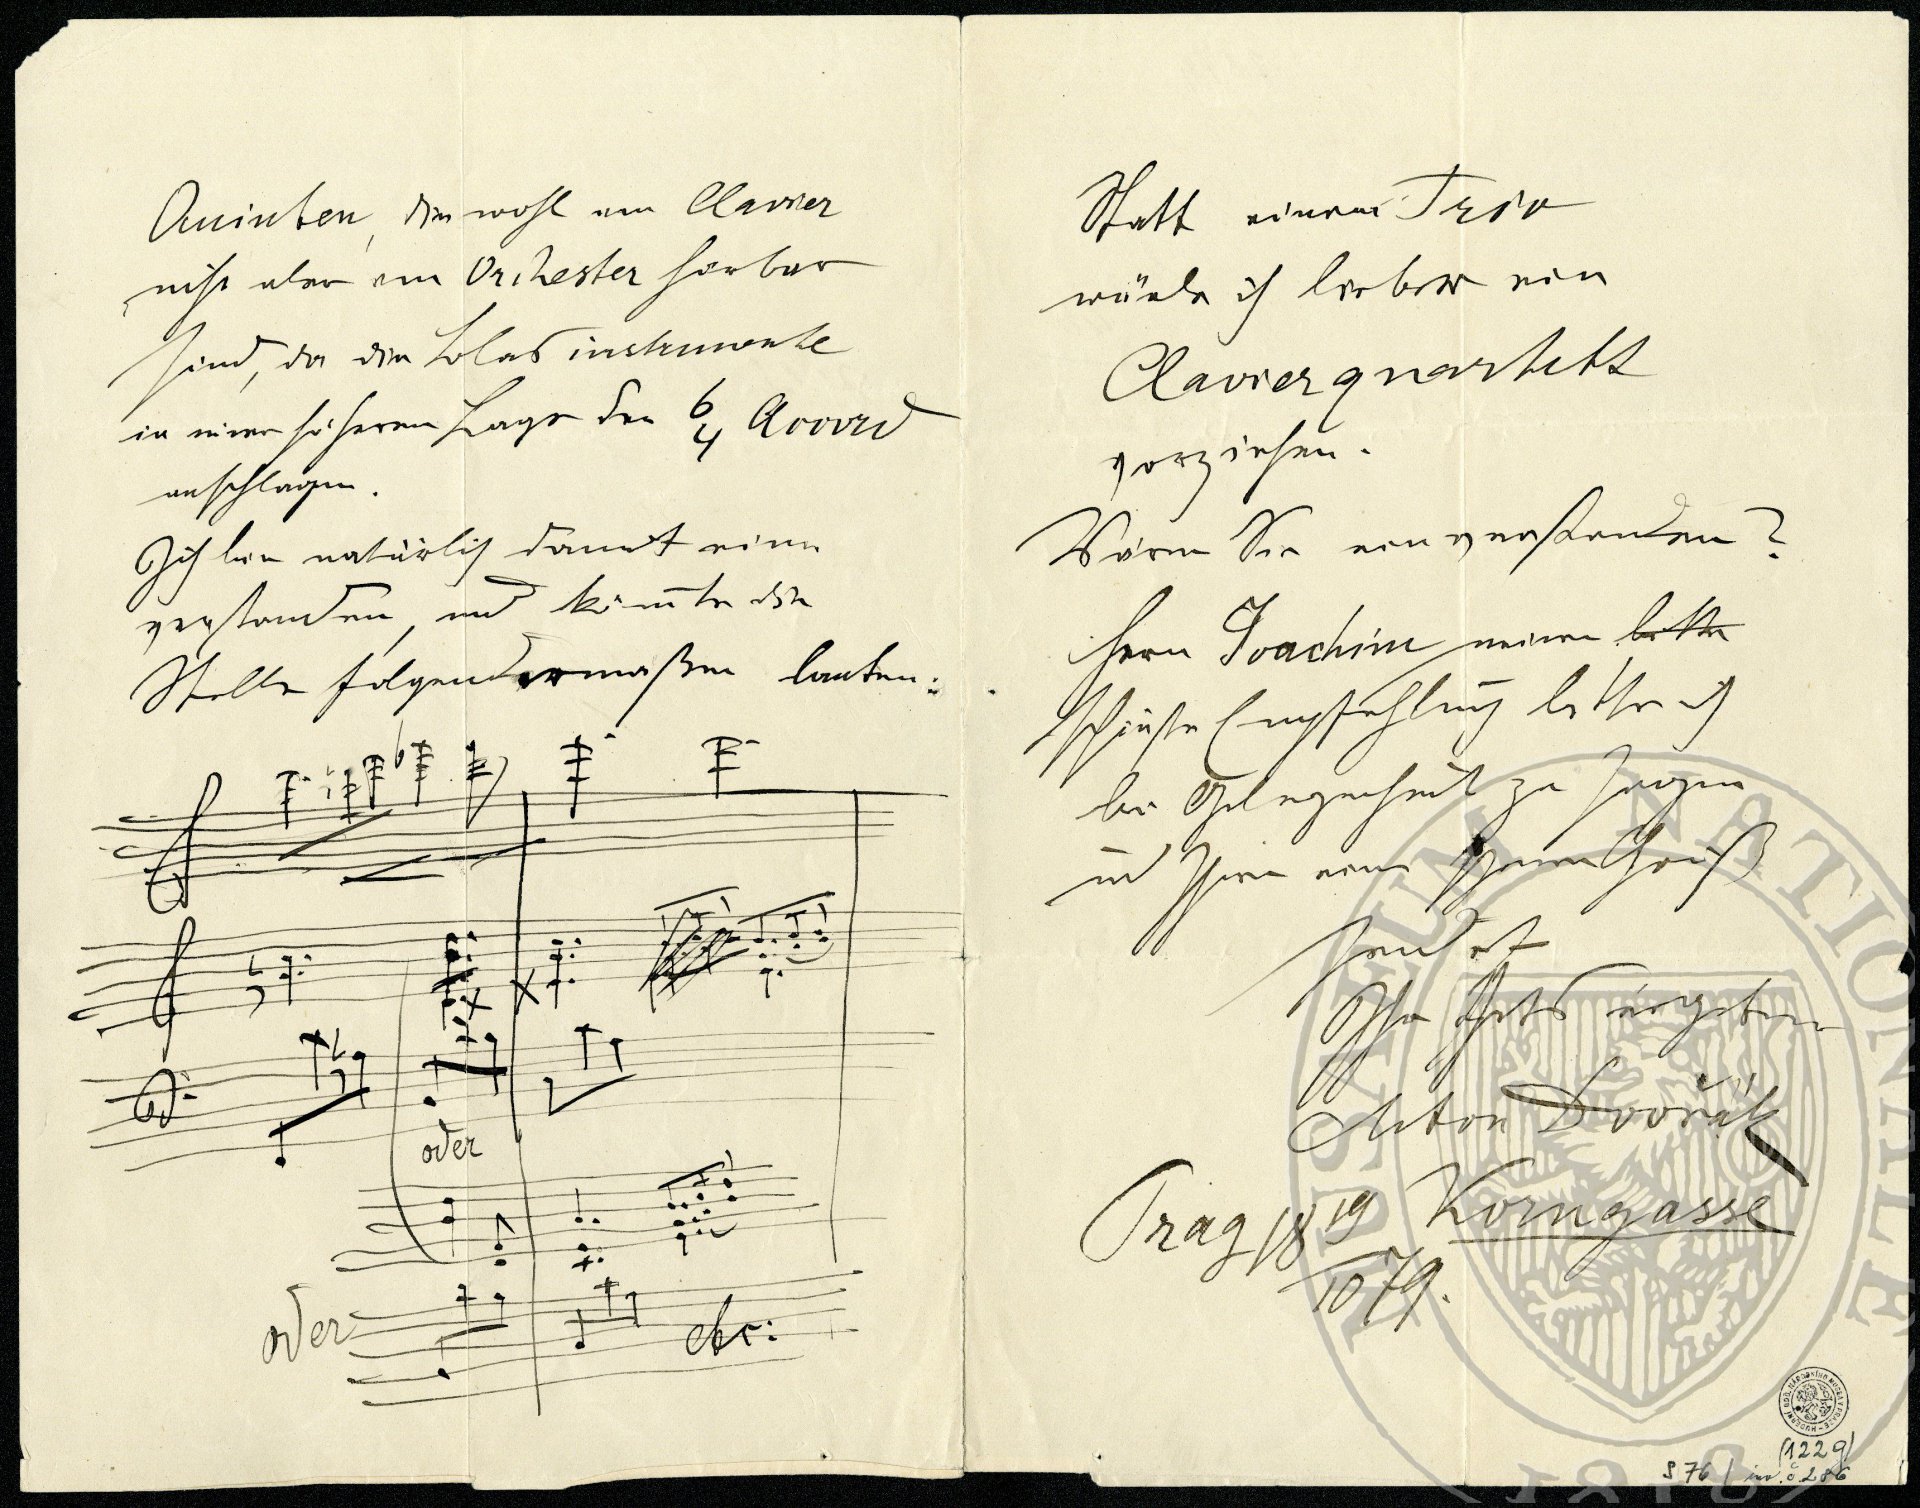 Quinten, die wohl am Clavier
nicht aber im Orchester hörbar
sind, da die Holzblasinstrumente
in einer höheren Lage den 6/4 Accord
anschlagen.
Ich bin natürlich damit einver
standen, und könnte die
Stelle folgendermaßen lauten:
oder
oder
etc:
Statt einem Trio
würde ich lieber ein
Clavierquartett
vorziehen.
Wären Sie einverstanden?
Herrn Joachim meine
schönste Empfehlung bitte ich
bei Gelegenheit zu sagen
und Ihnen einen schönen Gruß
sendet
Ihr stets ergebener
Anton Dvořák
Prag 18 19/10 79. Korngasse
MUSEUM NATIONALE
1818
(1229)
S 76 / inv. č. 286